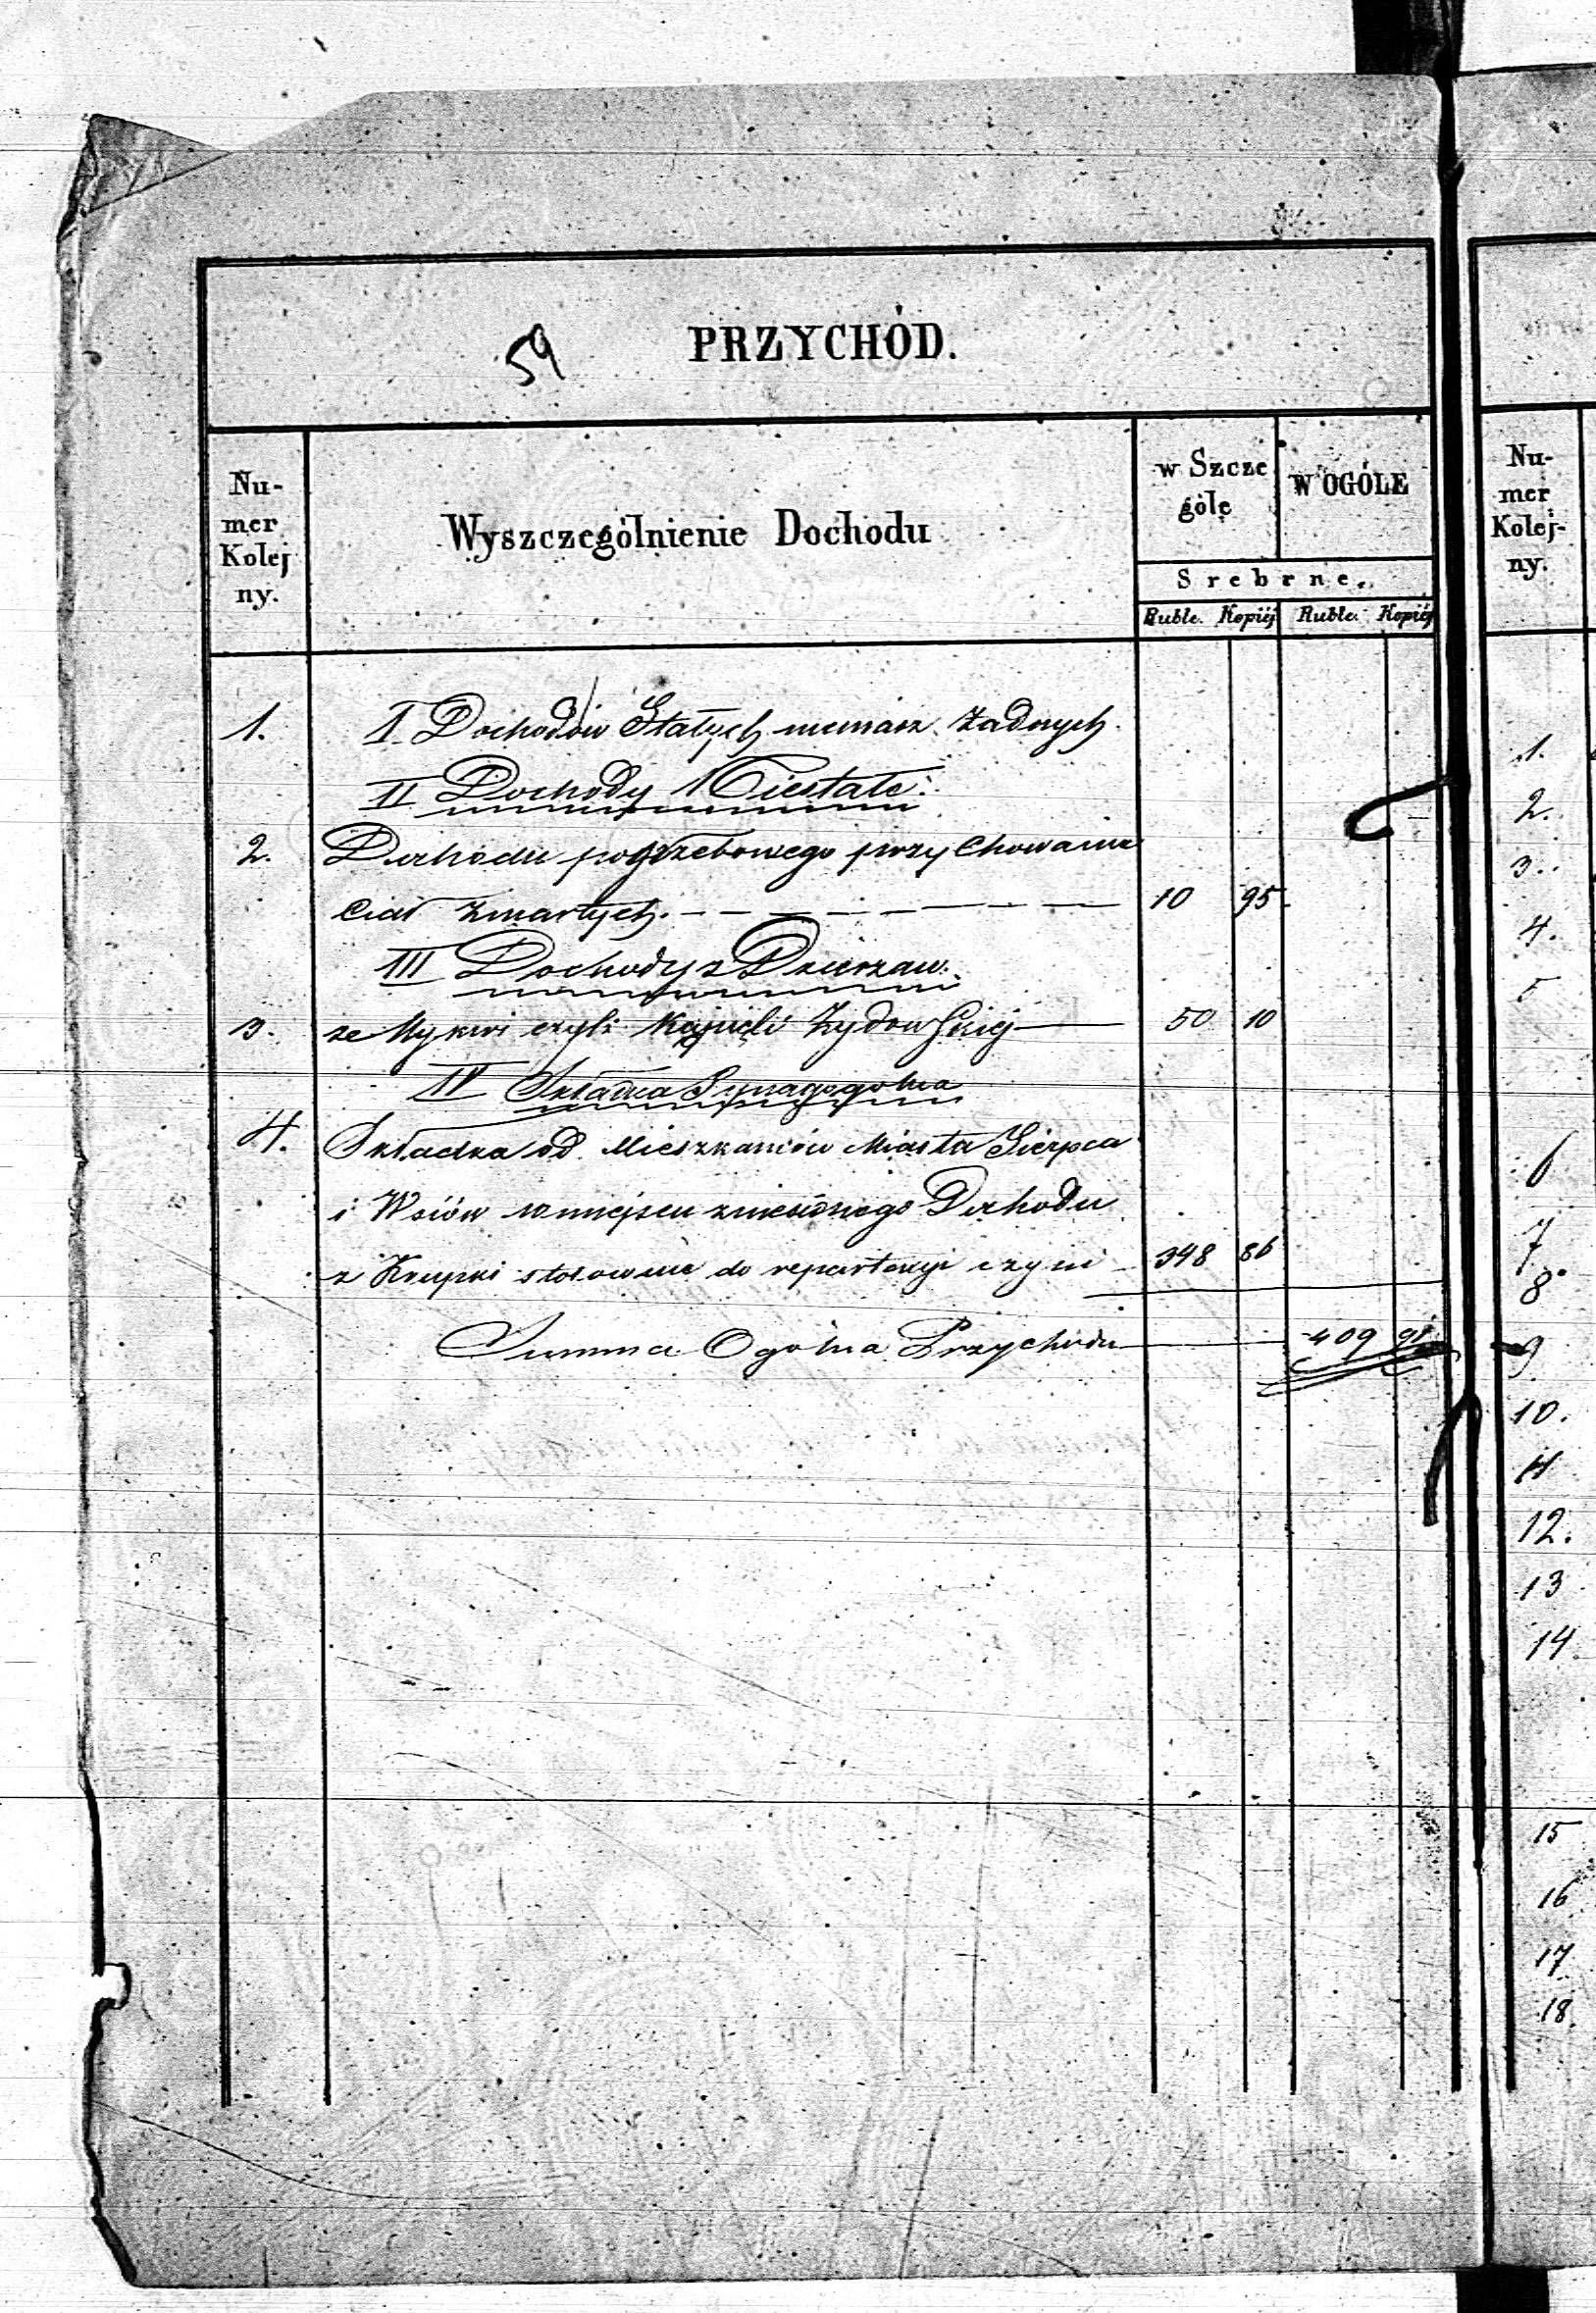 59
PRZYCHÓD.
Nu-
mer
Kolej
ny.
Wyszczególnienie Dochodu
w Szcze
góle
W OGÓLE
Srebrne.
Ruble. Kopiéj Ruble. Kopiéj
1. I. Dochodów Stałych niemasz żadnych.
II Dochody Niestałe.
2. Dochodu pogrzebowego przy Chowaniu
Ciał Zmarłych. 10 95.
III Dochody z Dzierzaw.
3. ze Mykwi czyli Kąpieli Żydowskiej 50 10
IV Składka Synagogolna
4. Składka od Mieszkańców Miasta Sierpca
i Wsiów w miejscu zniesionego Dochodu
z Krupki stosownie do repartycyi czyni 348 86
Summa Ogólna Przychodu 409 91
Nu-
mer
Kolej-
ny.
1.
2.
3.
4.
5
6
7
8
9
10.
11
12.
13
14
15
16
17
18.